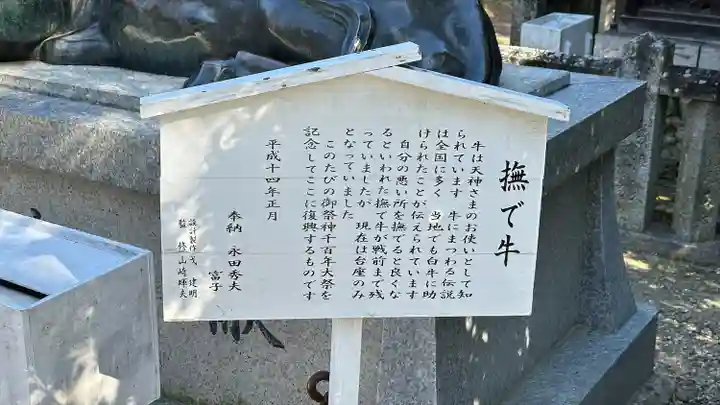 撫で牛
牛は天神さまのお使いとして知
られています 牛にまつわる伝説
は全国に多く 当地でも白牛に助
けられたことが伝えられています
自分の悪い所を撫でると良くな
るといわれた撫で牛が戦前まで残
っていましたが 現在は台座のみ
となっていました
このたびの御祭神千百年大祭を
記念してここに復興するものです
平成十四年正月
奉納 永田秀夫
富子
設計製作 戈 建明
監修 山崎輝夫
献